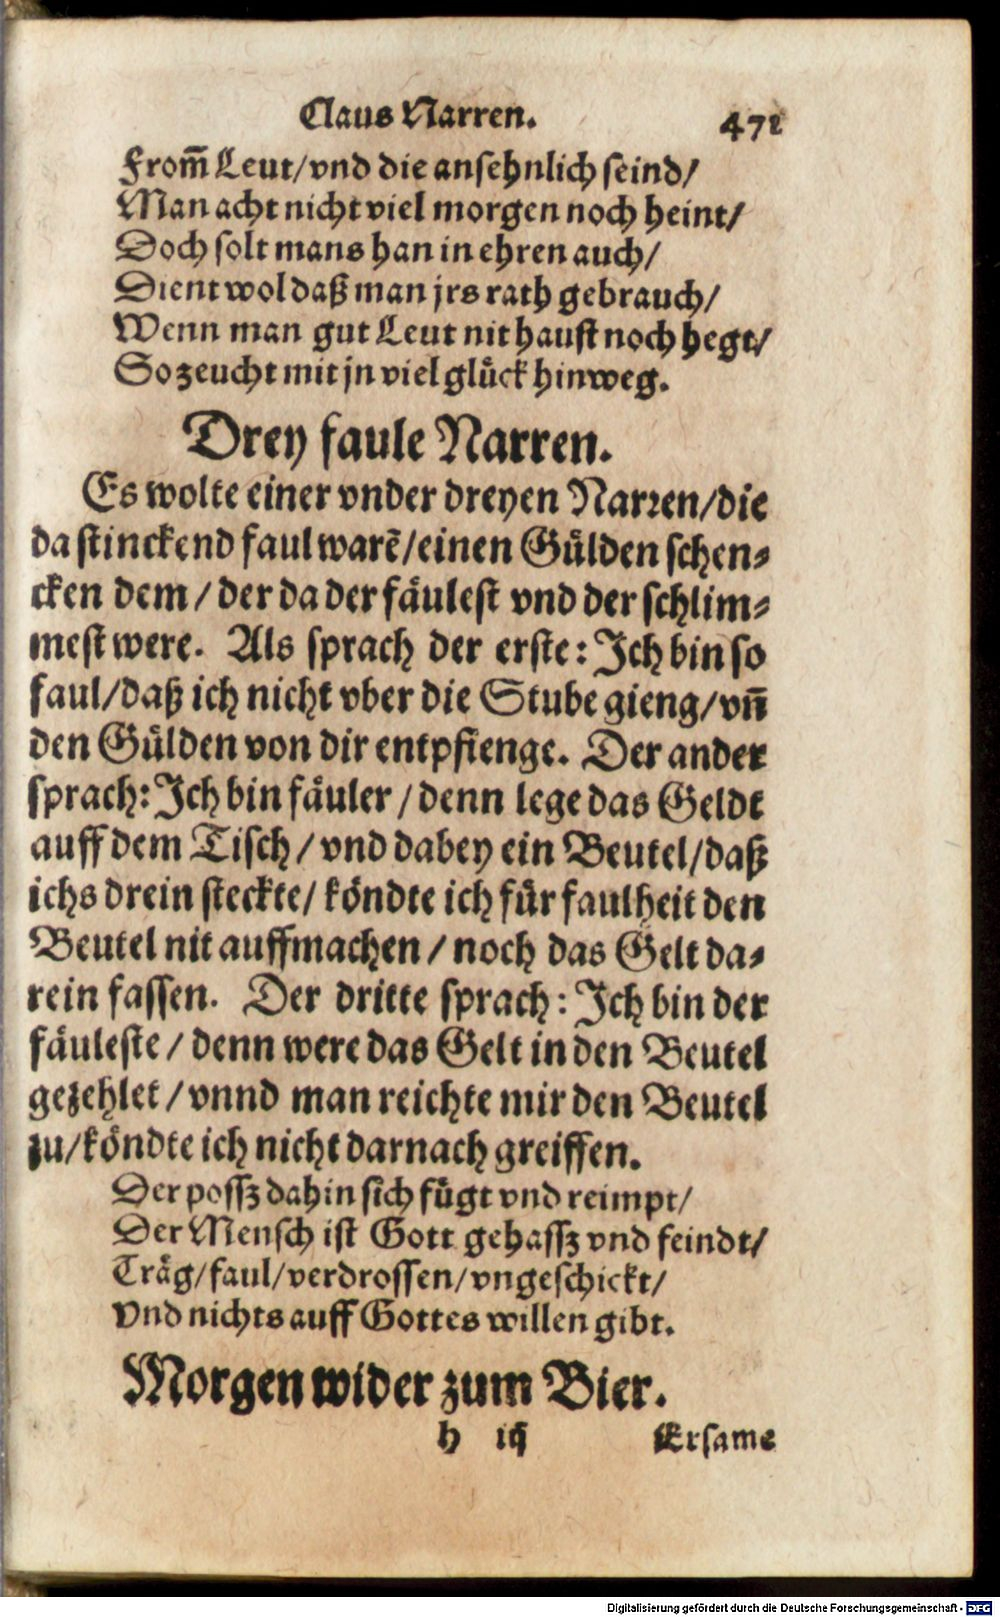 Claus Narren. 471
From̃ Leut/vnd die ansehnlich seind/
Man acht nicht viel morgen noch heint/
Doch solt mans han in ehren auch/
Dient wol daß man jrs rath gebrauch/
Wenn man gut Leut nit haust noch hegt/
So zeucht mit jn viel glück hinweg.
Drey faule Narren.
Es wolte einer vnder dreyen Narren/die
da stinckend faul warẽ/einen Gülden schen-
cken dem/der da der fäulest vnd der schlim-
mest were. Als sprach der erste: Ich bin so
faul/daß ich nicht vber die Stube gieng/vñ
den Gülden von dir entpfienge. Der ander
sprach: Ich bin fäuler/denn lege das Geldt
auff dem Tisch/vnd dabey ein Beutel/daß
ichs drein steckte/köndte ich für faulheit den
Beutel nit auffmachen/noch das Gelt da-
rein fassen. Der dritte sprach: Ich bin der
fäuleste/denn were das Gelt in den Beutel
gezehlet/vnnd man reichte mir den Beutel
zu/köndte ich nicht darnach greiffen.
Der possz dahin sich fügt vnd reimpt/
Der Mensch ist Gott gehassz vnd feindt/
Träg/faul/verdrossen/vngeschickt/
Vnd nichts auff Gottes willen gibt.
Morgen wider zum Bier.
h iij Ersame
Digitalisierung gefördert durch die Deutsche Forschungsgemeinschaft - DFG